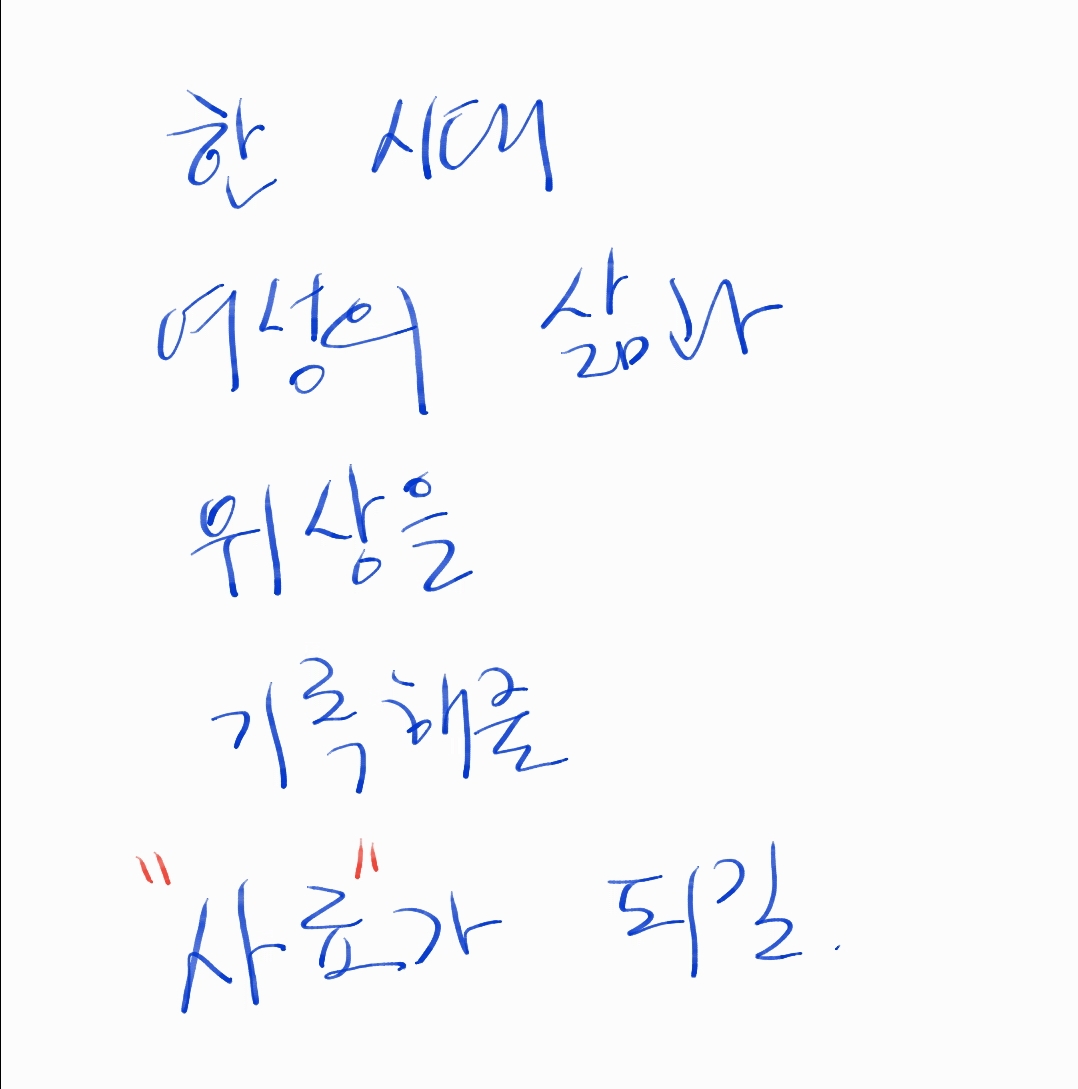 한 시대
여성의 삶과
위상을
기록해줄
"사료"가 되길.